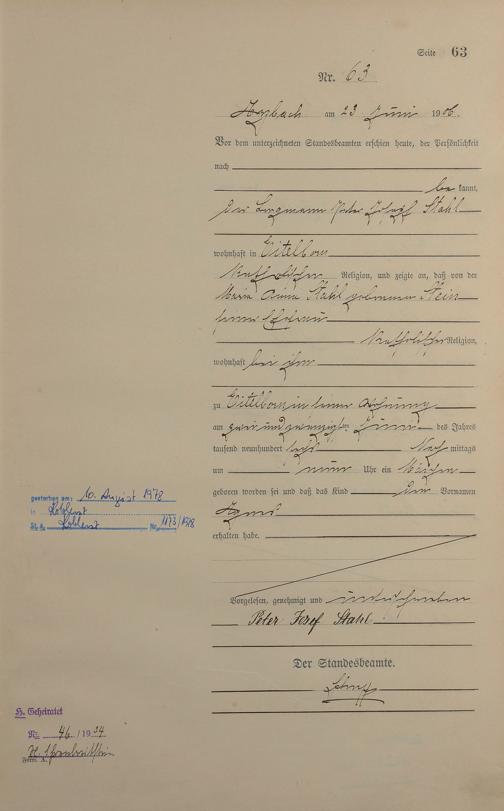 Seite 63
Nr. 63
am 23 Juni 1906.
Vor dem unterzeichneten Standesbeamten erschien heute, der Persönlichkeit
nach
be kannt,
der Bergmann Peter Josef Stahl
wohnhaft in Eitelborn
katholischer Religion, und zeigte an, daß von der
Maria Anna Stahl geborenen Stein
seiner Ehefrau
katholischer Religion,
wohnhaft bei ihm
zu Eitelborn in seiner Wohnung
am zwei und zwanzigsten Juni des Jahres
tausend neunhundert sechs Nach mittags
um neun Uhr ein Mädchen
geboren worden sei und daß das Kind den Vornamen
Agnes
erhalten habe.
Vorgelesen, genehmigt und unterschrieben
Peter Josef Stahl
Der Standesbeamte.
gestorben am: 10. August 1978
in Koblenz
St.A. Koblenz Nr. 1173/1978
H. Geheiratet
Nr. 46 / 1934
Form. A.